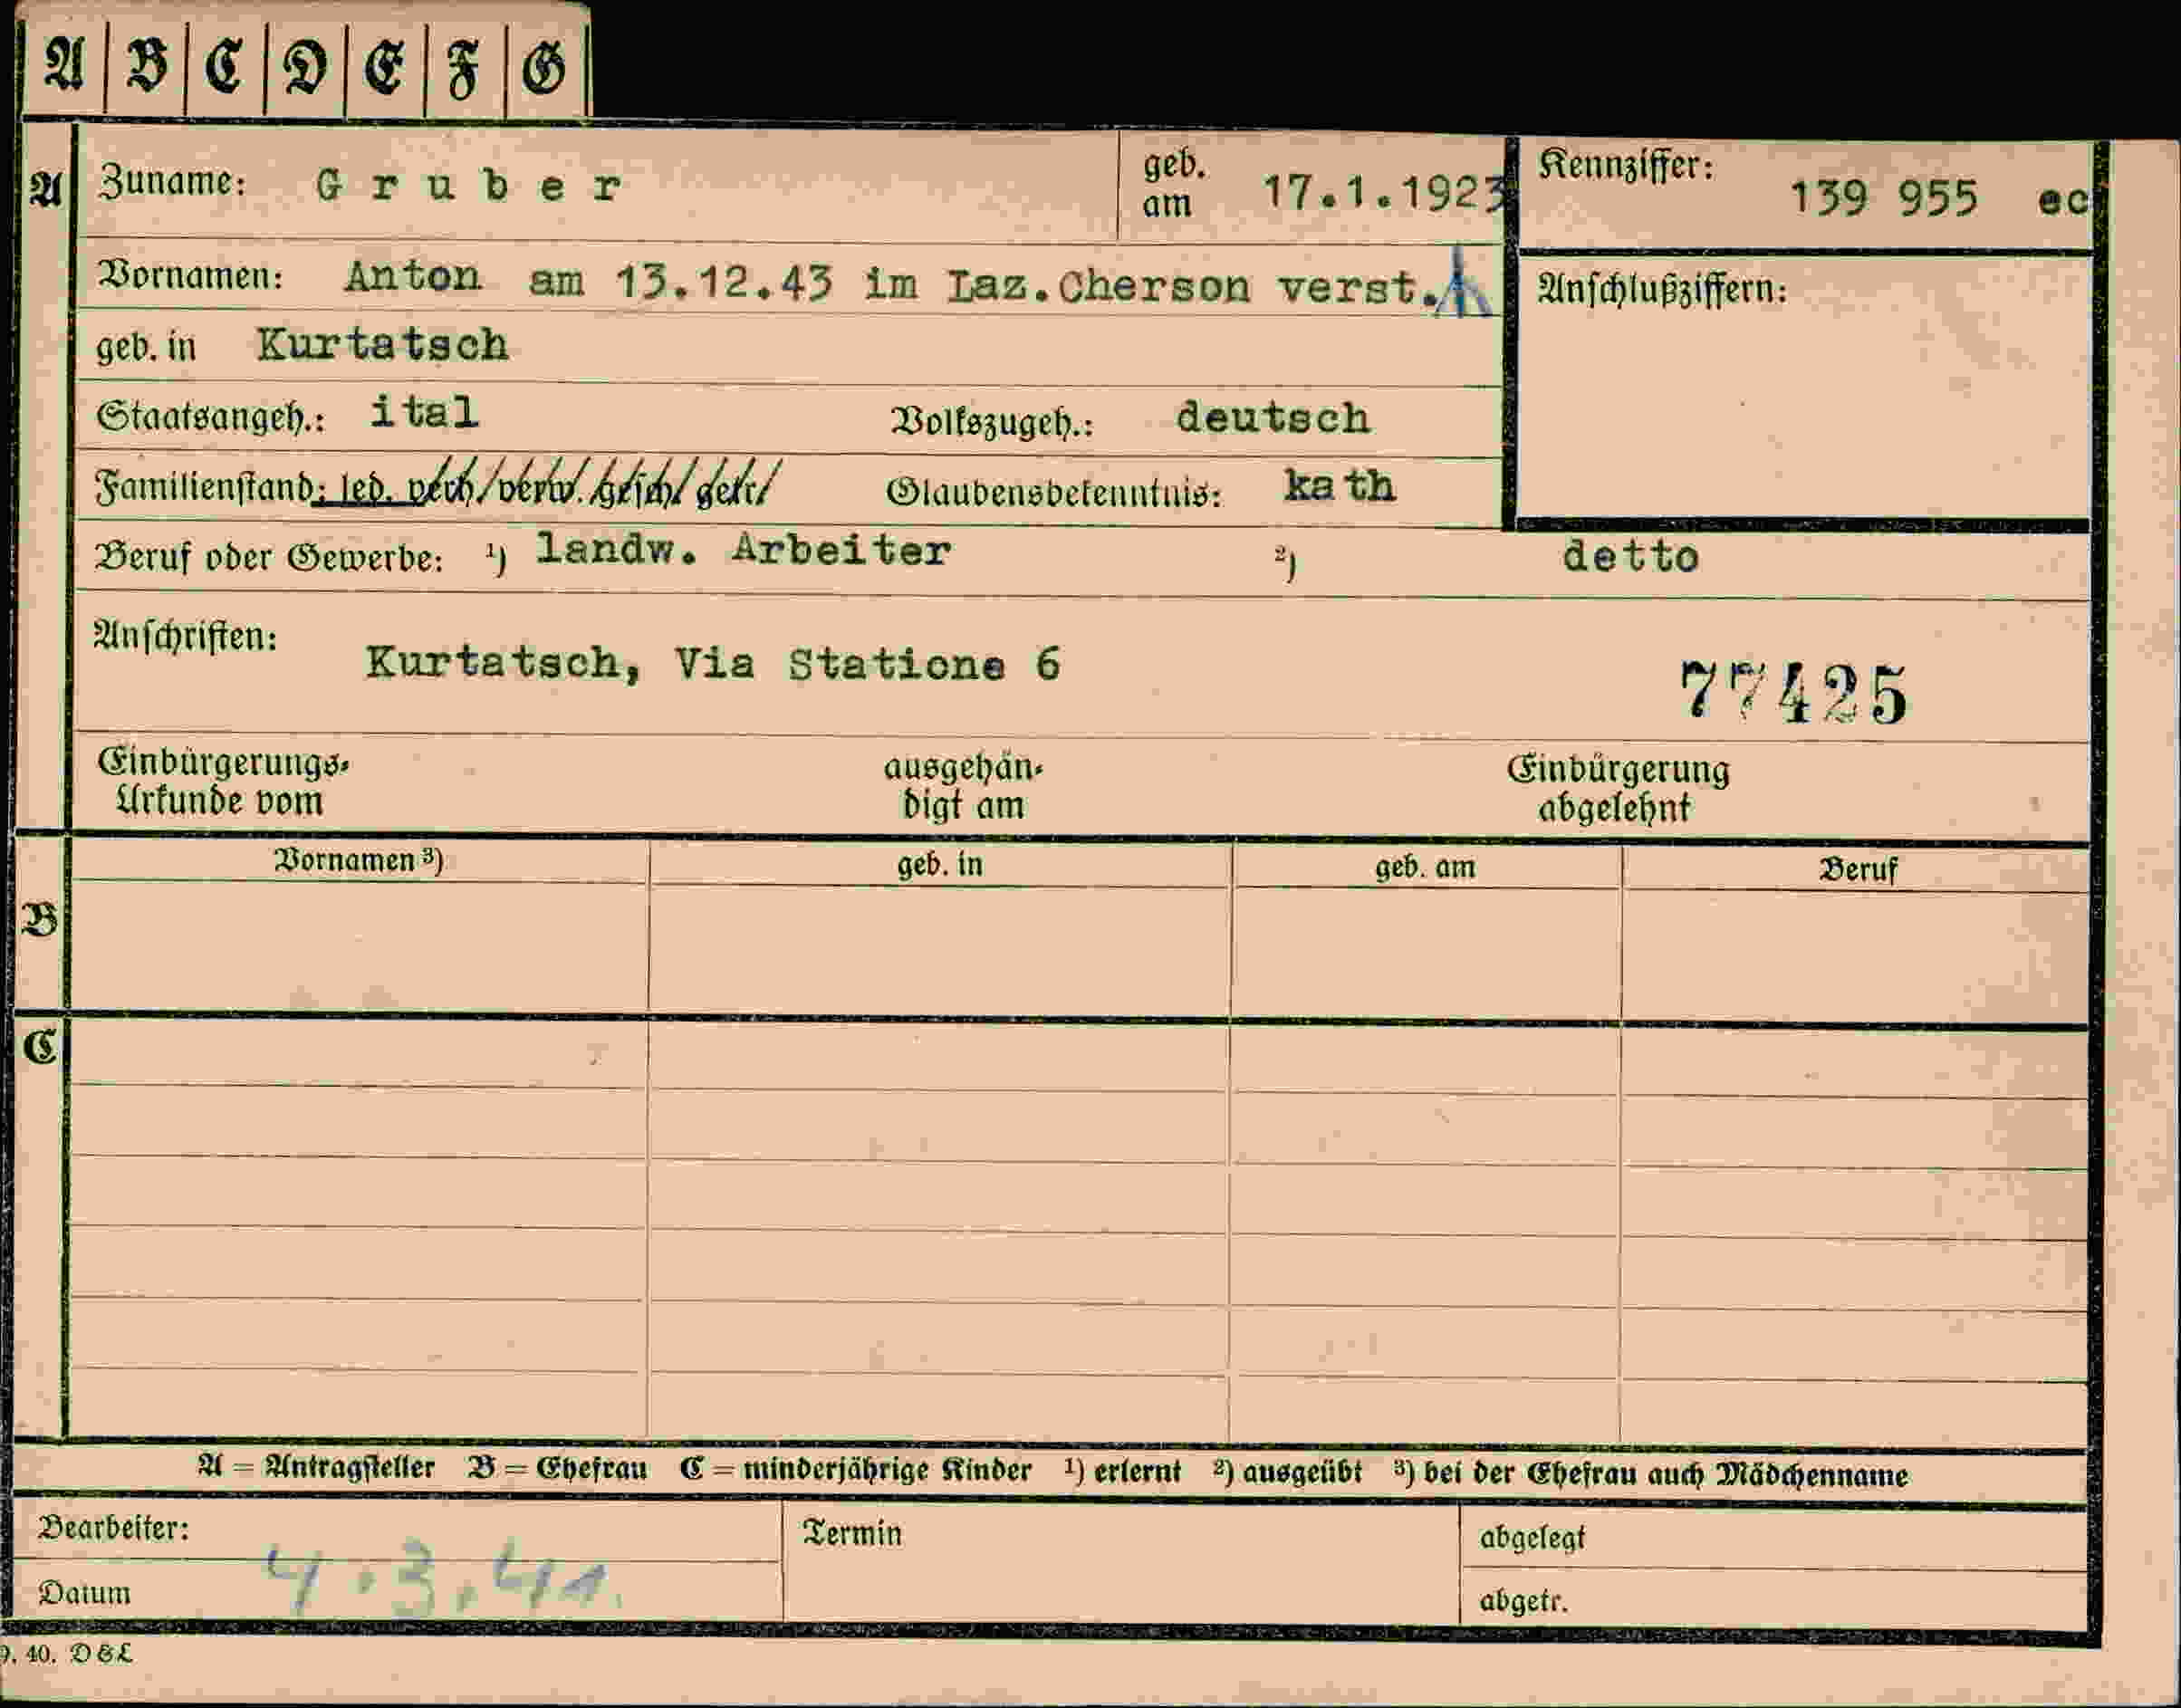 A B C D E F G
A Zuname: Gruber geb. am 17.1.1923 Kennziffer: 139 955 ec
Vornamen: Anton am 13.12.43 im Laz.Cherson verst. Anschlußziffern:
geb. in Kurtatsch
Staatsangeh.: ital Volkszugeh.: deutsch
Familienstand: led. verh./verw./gesch./getr./ Glaubensbekenntnis: kath
Beruf oder Gewerbe: ¹) landw. Arbeiter ²) detto
Anschriften: Kurtatsch, Via Statione 6
77425
Einbürgerungs-Urkunde vom ausgehändigt am Einbürgerung abgelehnt
Vornamen ³) geb. in geb. am Beruf
B
C
A = Antragsteller B = Ehefrau C = minderjährige Kinder ¹) erlernt ²) ausgeübt ³) bei der Ehefrau auch Mädchenname
Bearbeiter: Termin abgelegt
Datum 4.3.41. abgetr.
9. 40. D&L